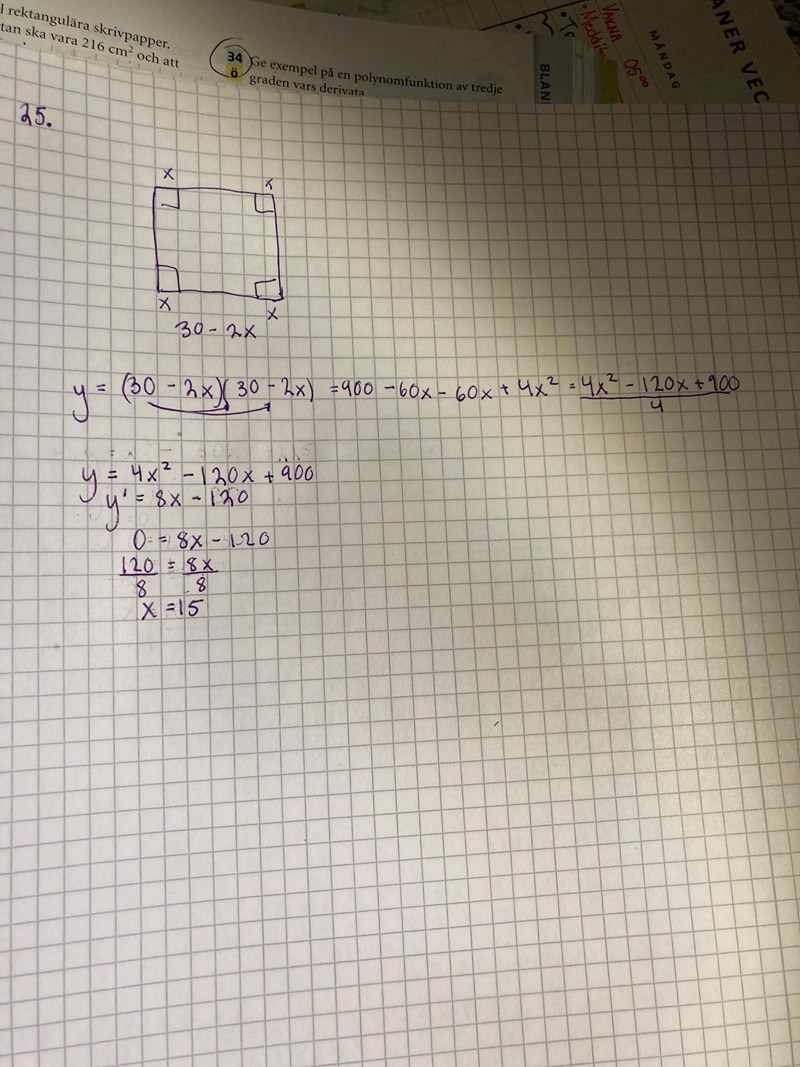 l rektangulära skrivpapper.
tan ska vara 216 cm² och att
34
ö
Ge exempel på en polynomfunktion av tredje
graden vars derivata
BLAN
VAKNA 05⁰⁰
MÅNDAG
ANER VEC
25.
x x
x x
30 - 2x
y = (30 - 2x)(30 - 2x) = 900 - 60x - 60x + 4x² = 4x² - 120x + 900
4
y = 4x² - 120x + 900
y' = 8x - 120
0 = 8x - 120
120 = 8x
8 8
x = 15